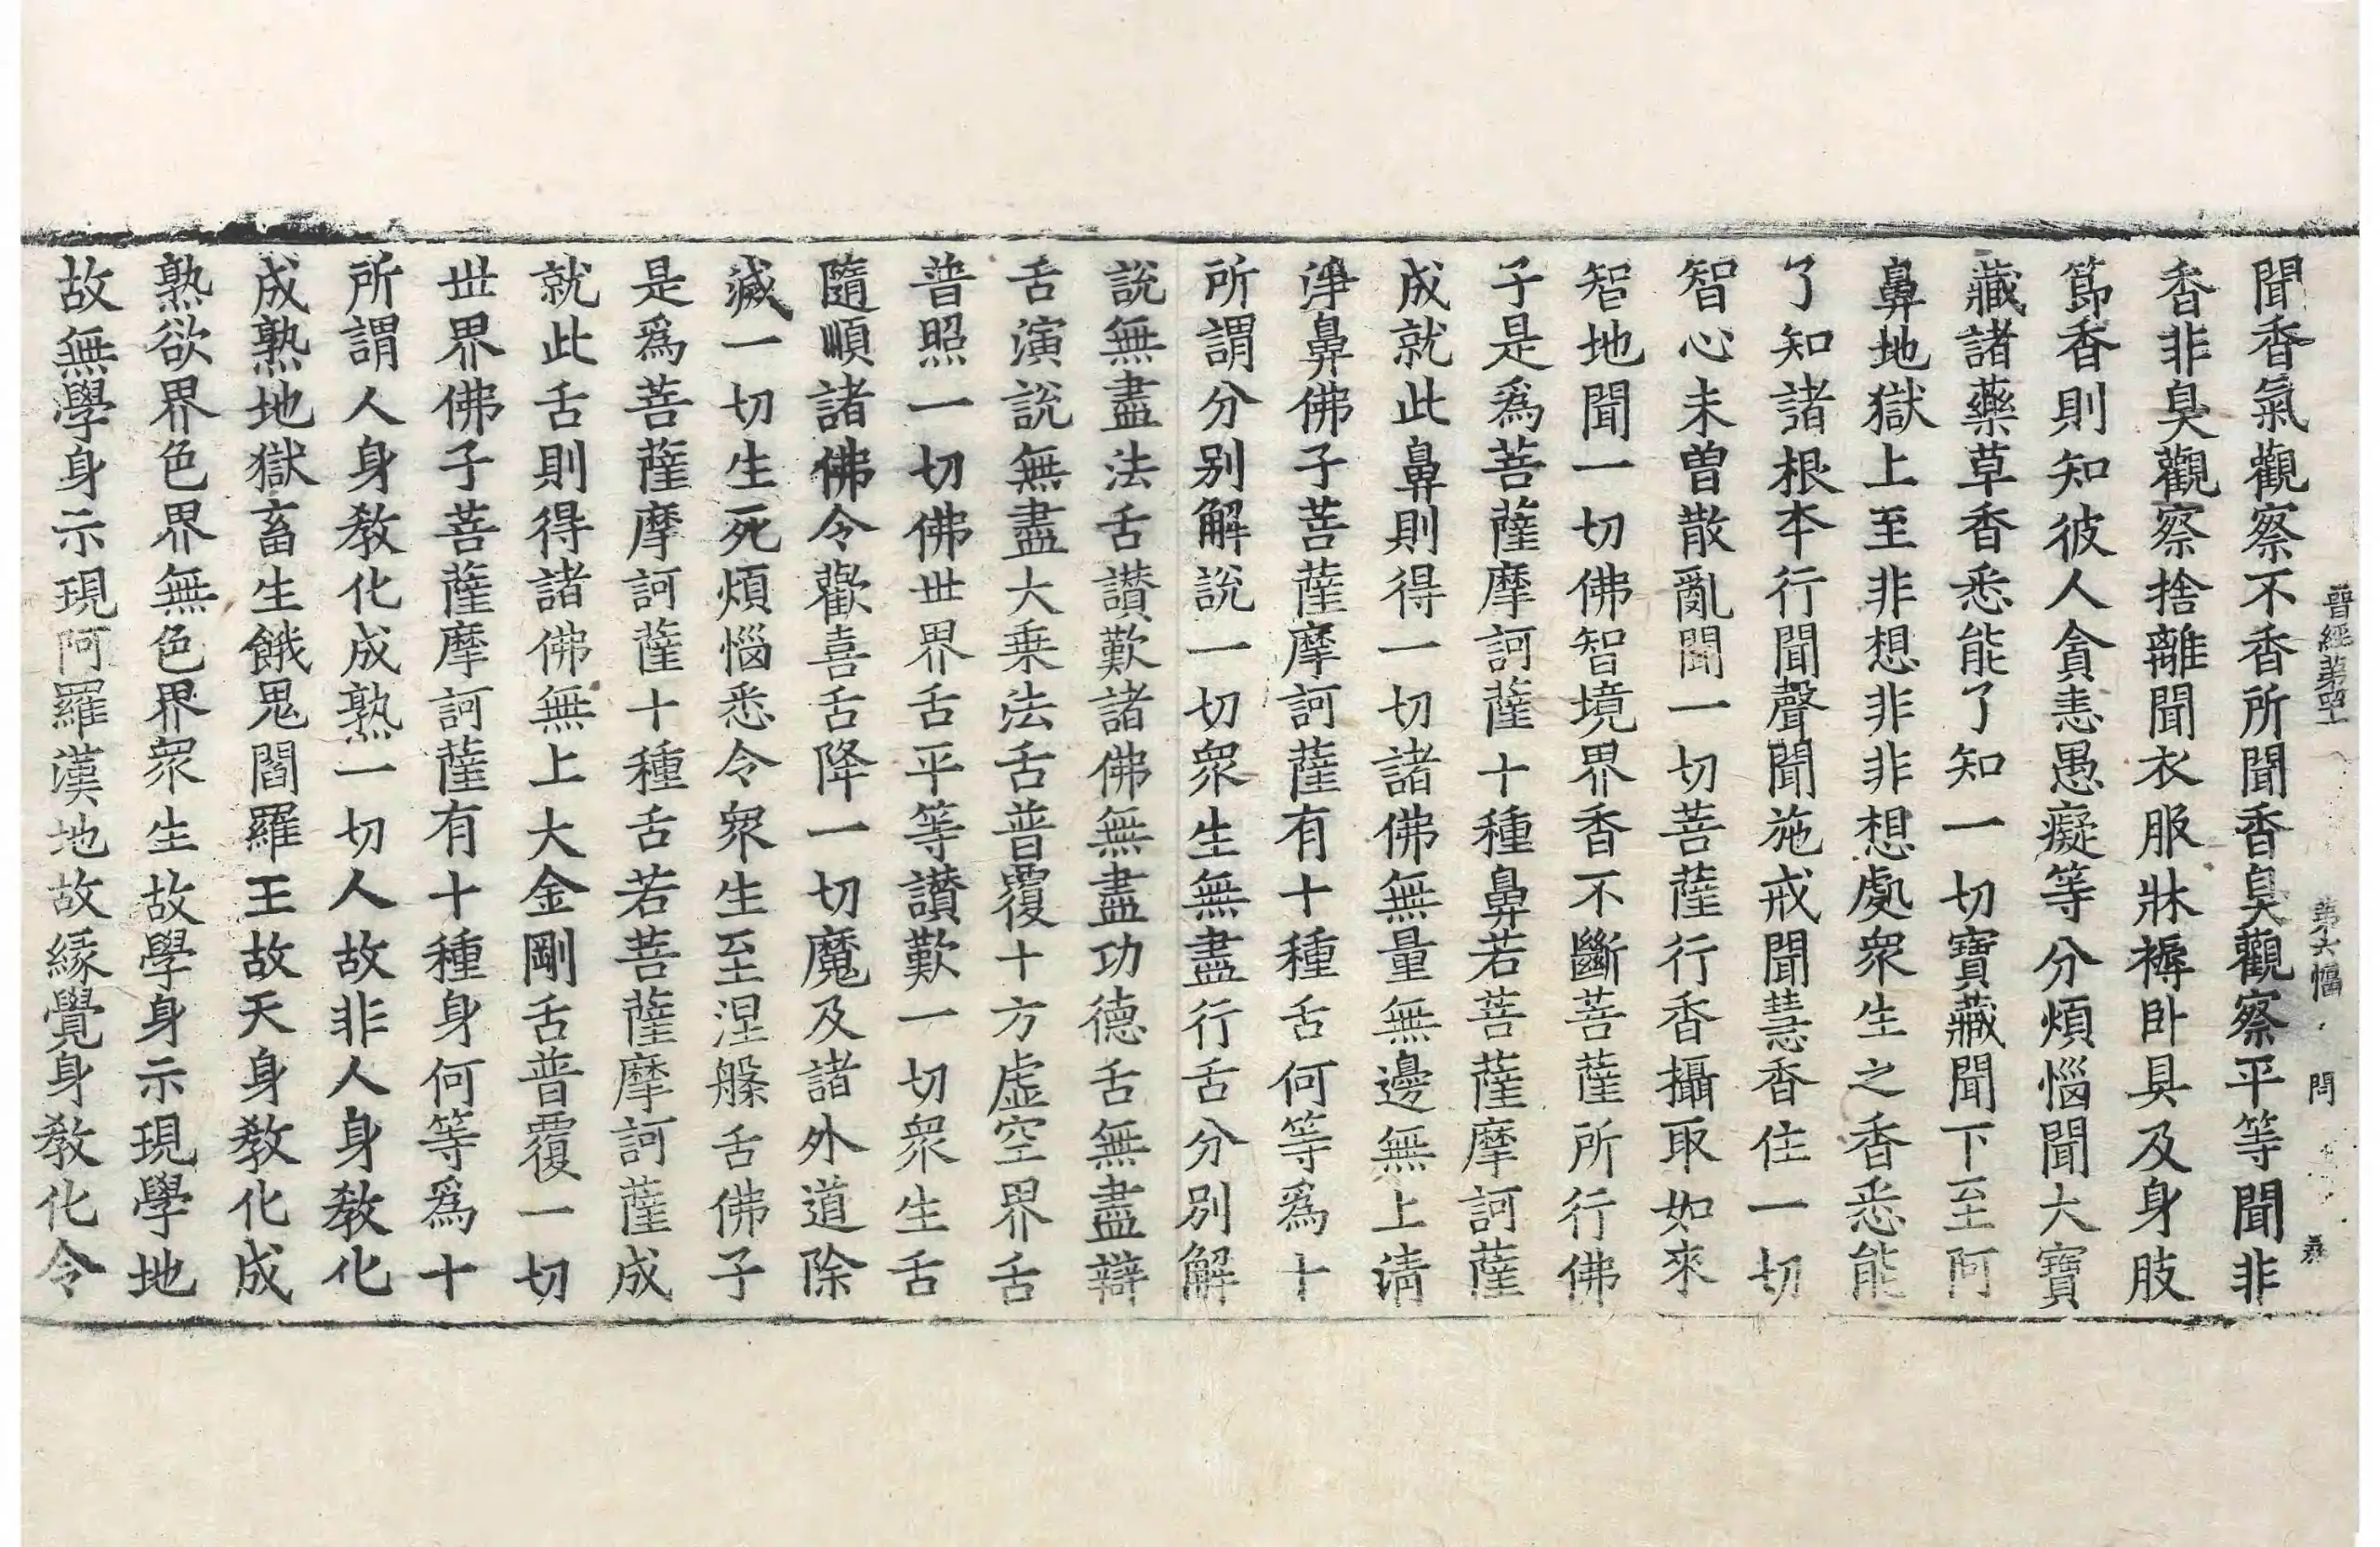 晉經第四十一 第六幅 問
聞香氣觀察不香所聞香臭觀察平等聞非
香非臭觀察捨離聞衣服牀褥卧具及身肢
節香則知彼人貪恚愚癡等分煩惱聞大寶
藏諸藥草香悉能了知一切寶藏聞下至阿
鼻地獄上至非想非非想處衆生之香悉能
了知諸根本行聞聲聞施戒聞慧香住一切
智心未曽散亂聞一切菩薩行香攝取如來
智地聞一切佛智境界香不斷菩薩所行佛
子是爲菩薩摩訶薩十種鼻若菩薩摩訶薩
成就此鼻則得一切諸佛無量無邊無上清
淨鼻佛子菩薩摩訶薩有十種舌何等爲十
所謂分别解說一切衆生無盡行舌分別解
說無盡法舌讃歎諸佛無盡功德舌無盡辯
舌演說無盡大乗法舌普覆十方虚空界舌
普照一切佛世界舌平等讃歎一切衆生舌
隨順諸佛令歡喜舌降一切魔及諸外道除
滅一切生死煩惱悉令衆生至涅槃舌佛子
是爲菩薩摩訶薩十種舌若菩薩摩訶薩成
就此舌則得諸佛無上大金剛舌普覆一切
世界佛子菩薩摩訶薩有十種身何等爲十
所謂人身教化成熟一切人故非人身教化
成熟地獄畜生餓鬼閻羅王故天身教化成
熟欲界色界無色界衆生故學身示現學地
故無學身示現阿羅漢地故緣覺身教化令